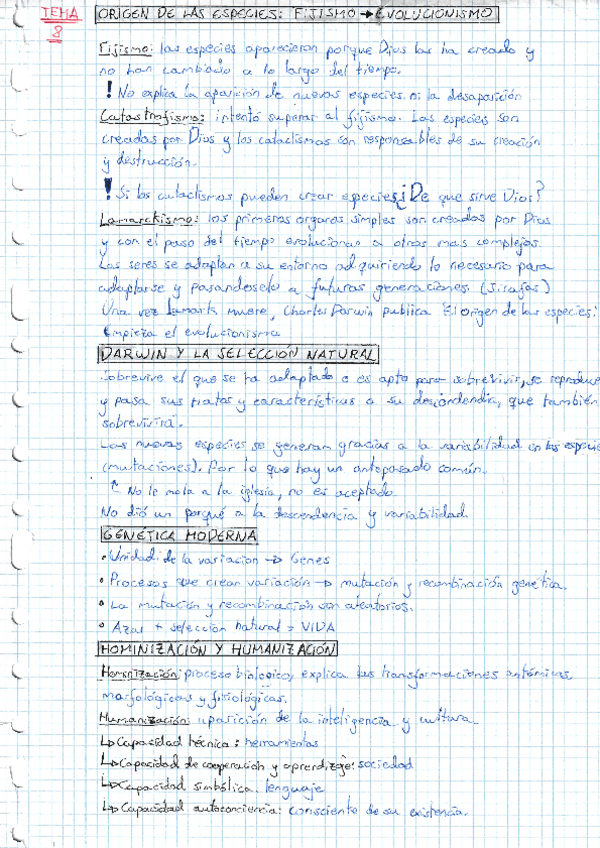 TEMA 8
ORIGEN DE LAS ESPECIES: FIJISMO → EVOLUCIONISMO
Fijismo: las especies aparecieron porque Dios las ha creado y
no han cambiado a lo largo del tiempo.
! No explica la aparición de nuevas especies ni la desaparición
Catastrofismo: intentó superar al fijismo. Las especies son
creadas por Dios y los cataclismos son responsables de su creación
y destrucción.
! Si los cataclismos pueden crear especies ¿De que sirve Dios?
Lamarckismo: los primeros organos simples son creados por Dios
y con el paso del tiempo evolucionan a otros mas complejos
Los seres se adaptan a su entorno adquiriendo lo necesario para
adaptarse y pasandoselo a futuras generaciones. (Jirafas)
Una vez Lamark muere, Charles Darwin publica "El origen de las especies."
Empieza el evolucionismo
DARWIN Y LA SELECCIÓN NATURAL
Sobrevive el que se ha adaptado o es apto para sobrevivir, se reproduce
y pasa sus y características a su descendencia, que también
sobrevivirá.
Las nuevas especies se generan gracias a la variabilidad en las especies
(mutaciones). Por lo que hay un antepasado común.
↑ No le mola a la iglesia, no es aceptado
No dió un porqué a la descendencia y variabilidad.
GENÉTICA MODERNA
• Unidad de la variacion → Genes
• Procesos que crean variación → mutación y recombinación genética.
• La mutación y recombinación son aleatorios.
• Azar + selección natural = VIDA
HOMINIZACIÓN Y HUMANIZACIÓN
Hominización: proceso biologico, explica las transformaciones anatómicas,
morfológicas y fisiológicas.
Humanización: aparición de la inteligencia y cultura
↳ Capacidad técnica: herramientas
↳ Capacidad de cooperación y aprendizaje: sociedad
↳ Capacidad simbólica: lenguaje
↳ Capacidad autoconciencia: consciente de su existencia.